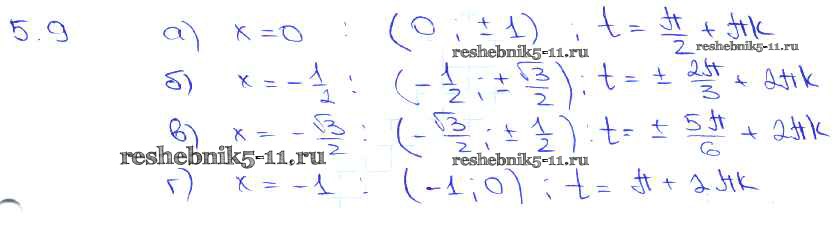 5.9 а) x = 0 : (0 ; ± 1) ; t = π/2 + πk
reshebnik5-11.ru reshebnik5-11.ru
б) x = - 1/2 : (- 1/2 ; ± √3/2) ; t = ± 2π/3 + 2πk
в) x = - √3/2 : (- √3/2 ; ± 1/2) : t = ± 5π/6 + 2πk
reshebnik5-11.ru reshebnik5-11.ru
г) x = -1 : (-1 ; 0) ; t = π + 2πk